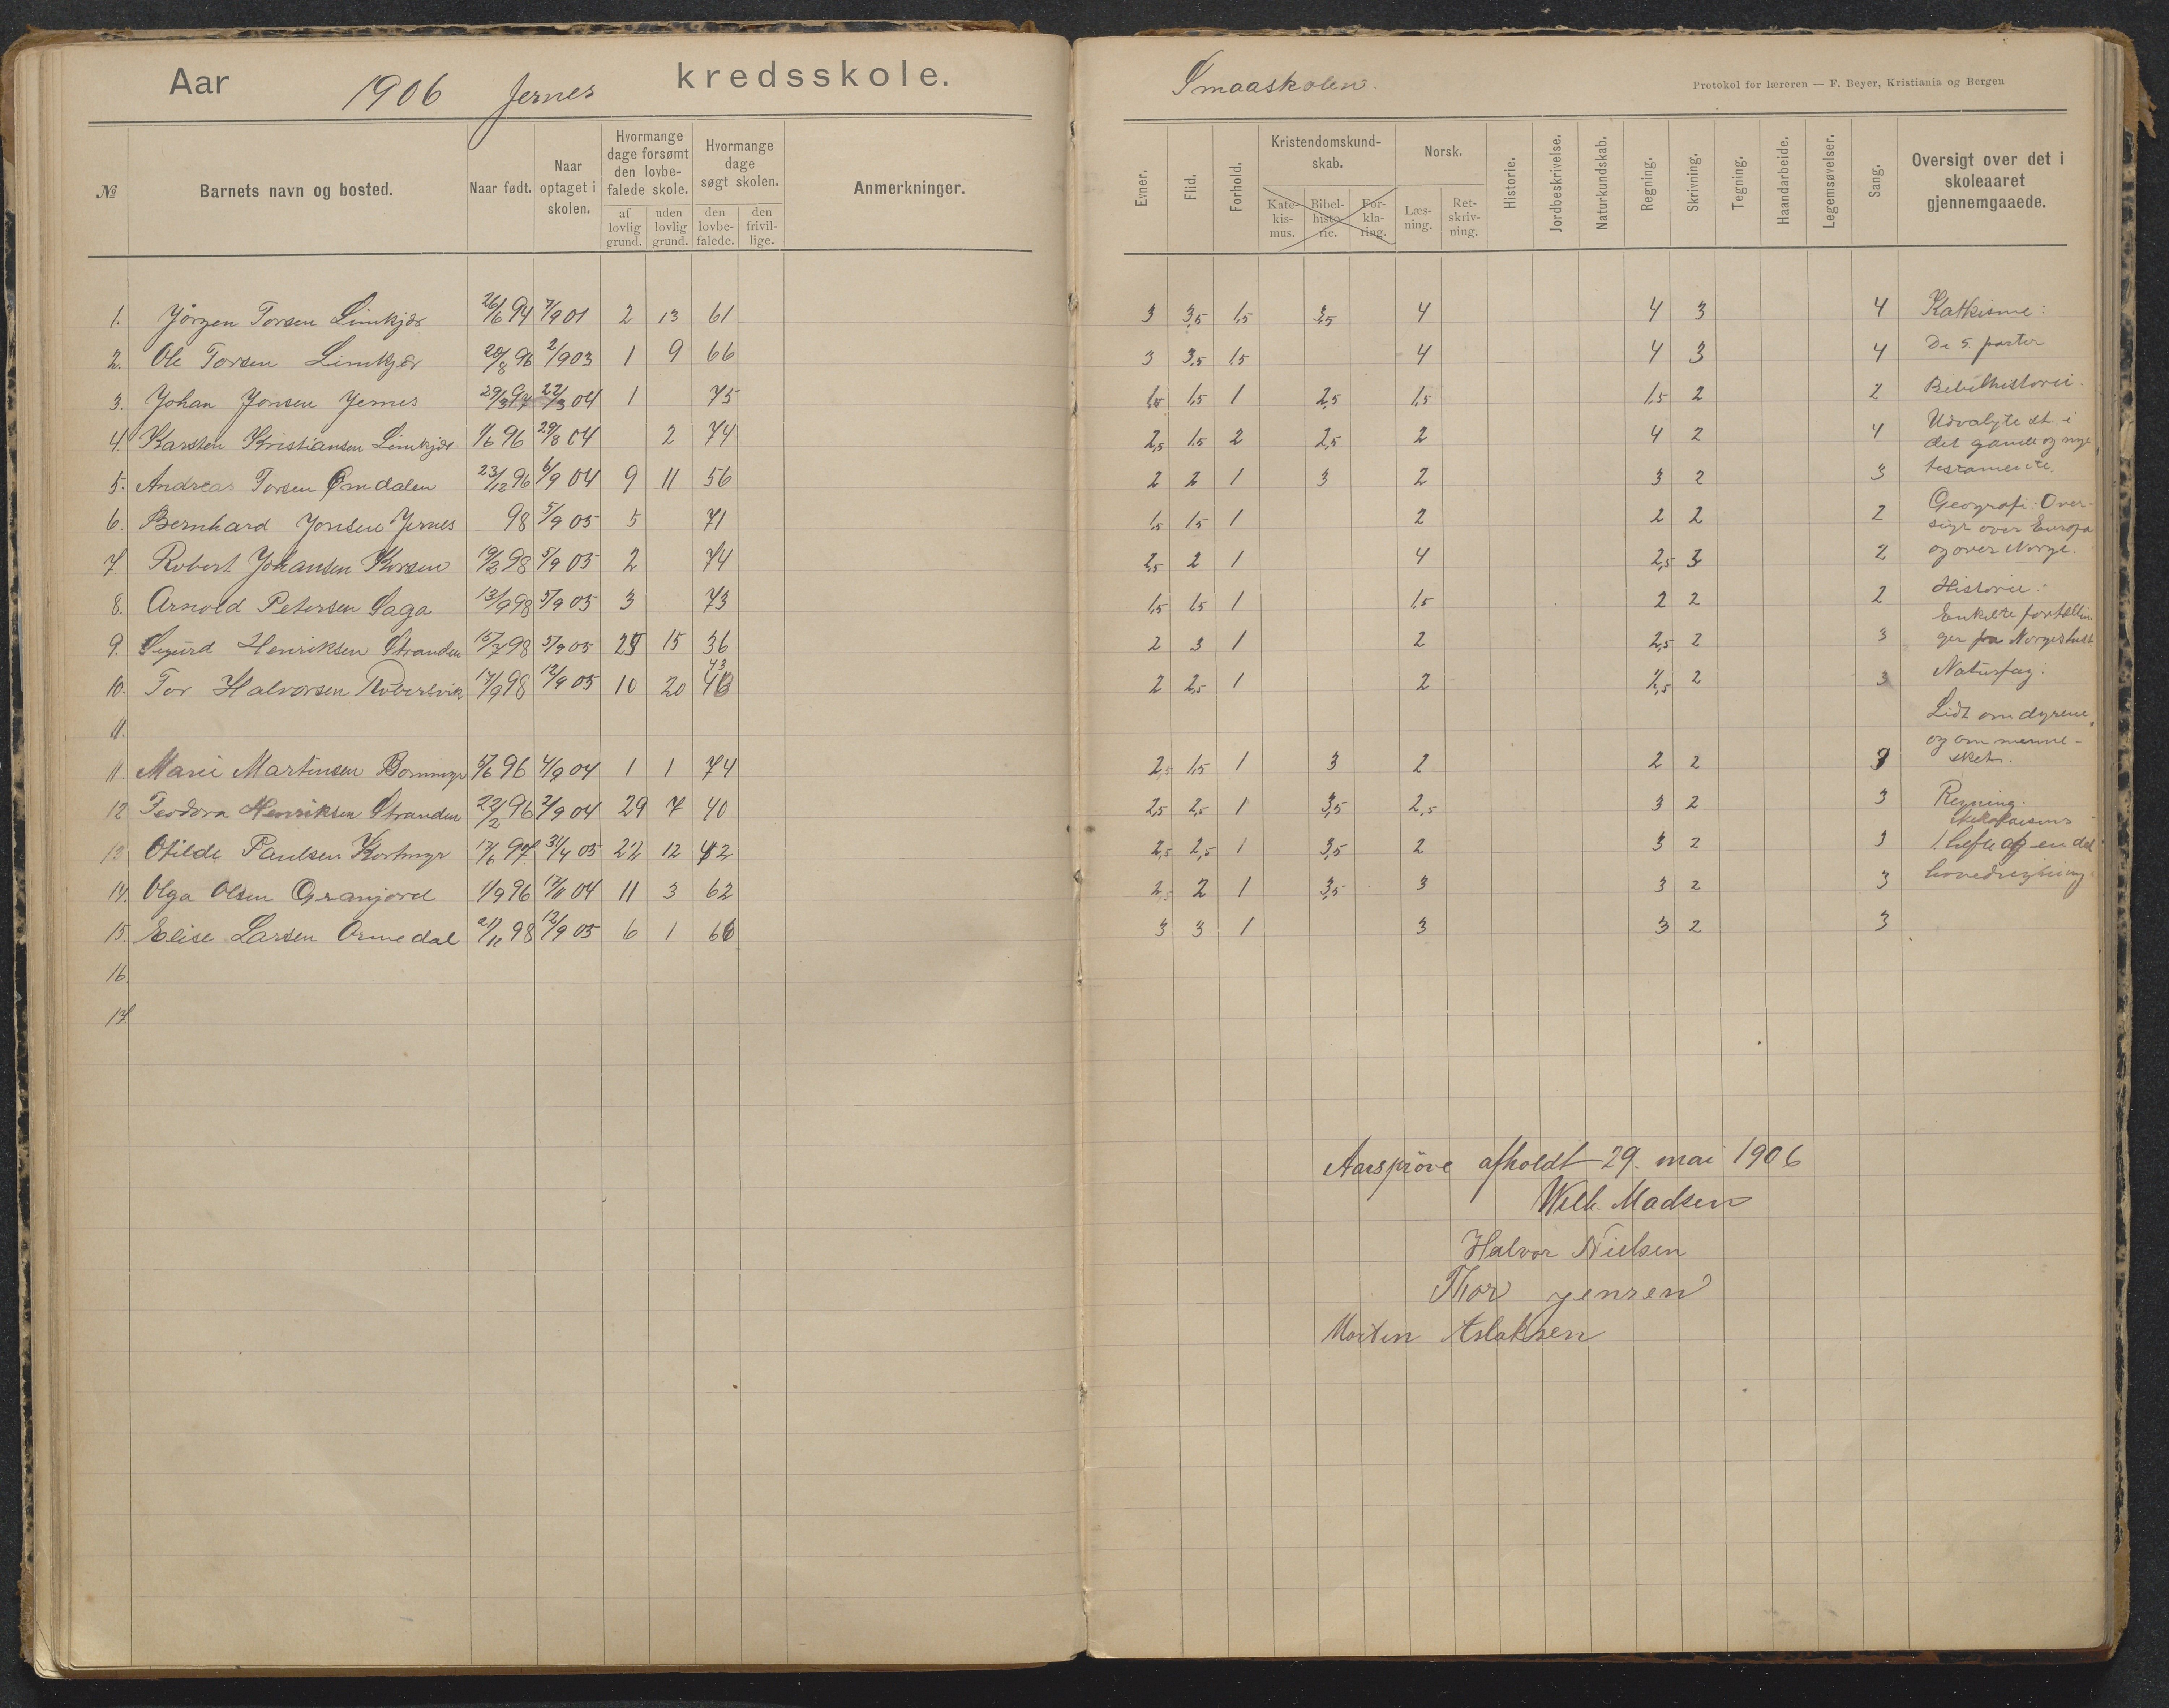 Aar 1906 Jernes kredsskole.
Smaaskolen.
Protokol for læreren — F. Beyer, Kristiania og Bergen
№ Barnets navn og bosted. Naar født. Naar optaget i skolen. Hvormange dage forsømt den lovbefalede skole. af lovlig grund. uden lovlig grund. Hvormange dage søgt skolen. den lovbefalede. den frivillige. Anmerkninger.
Evner. Flid. Forhold. Kristendomskundskab. Katekismus. Bibelhistorie. Forklaring. Norsk. Læsning. Retskrivning. Historie. Jordbeskrivelse. Naturkundskab. Regning. Skrivning. Tegning. Haandarbeide. Legemsøvelser. Sang. Oversigt over det i skoleaaret gjennemgaaede.
1. Jörgen Torsen Limkjær 26/6 94 7/9 01 2 13 61 3 3,5 1,5 3,5 4 4 3 4
2. Ole Torsen Limkjær 20/8 96 2/9 03 1 9 66 3 3,5 1,5 4 4 3 4
3. Johan Jonsen Jernes 29/3 97 22/3 04 1 75 1,5 1,5 1 2,5 1,5 1,5 2 2
4. Karsten Kristiansen Limkjær 1/6 96 29/8 04 2 74 2,5 1,5 2 2,5 2 4 2 4
5. Andreas Torsen Omdalen 23/12 96 6/9 04 9 11 56 2 2 1 3 2 3 2 3
6. Bernhard Jonsen Jernes 98 5/9 05 5 71 1,5 1,5 1 2 2 2 2
7 Robert Johansen 19/2 98 5/9 05 2 74 2,5 2 1 4 2,5 3 2
8. Arnold Petersen Saga 13/9 98 5/9 05 3 73 1,5 1,5 1 1,5 2 2 2
9. Sigurd Henriksen Stranden 15/7 98 5/9 05 15 36 2 3 1 2 2,5 2 3
10. Tor Halvorsen 17/9 98 12/9 05 10 20 43 2 2,5 1 2 2 3
11.
11. Marie Martinsen 96 4/9 04 1 1 74 2,5 1,5 1 3 2 2 2
12 Teodora Henriksen Stranden 22/2 96 2/9 04 29 7 40 2,5 2,5 1 3,5 2,5 3 2 3
13 Otilde Paulsen Kortmyr 17/6 97 05 22 12 42 2,5 2,5 1 3,5 2 3 2 3
14. Olga Olsen Granjord 1/9 96 17/11 04 11 3 62 2,5 2 1 3,5 3 3 2 3
15. Elise Larsen Ormedal 21/11 98 12/9 05 6 1 66 3 3 1 3 3 2 3
16.
17
Katkisme:
De 5 parter
Bibelhistorie.
Udvalgte st. i
det gamle og nye
testamente.
Geografi: Over-
sigt over Europa
og over Norge.
Historie:
Enkelte fortællin
ger fra Norgeshist.
Naturfag:
Lidt om dyrene
og om menne-
sket.
Regning.
1. hefte og en del
hovedregning
Aarspröve afholdt 29. mai 1906
Wilh. Madsen
Halvor Nielsen
Thor Jensen
Morten Aslaksen